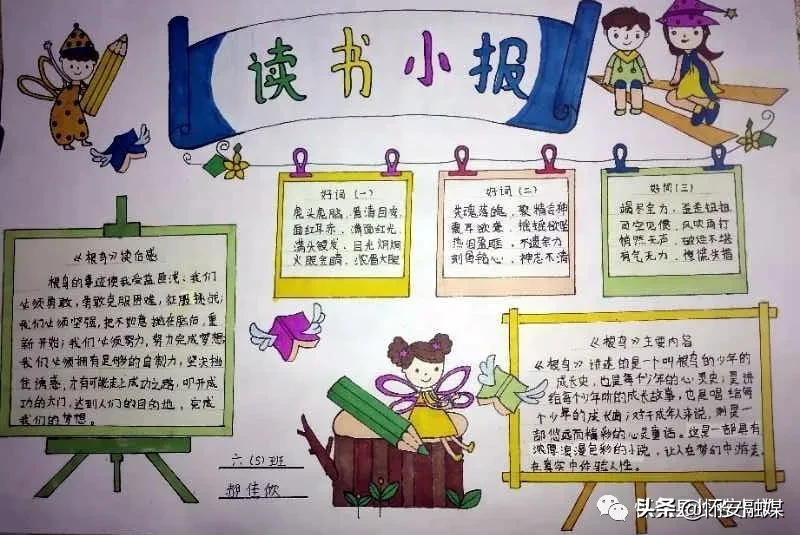 读书小报
好词(一)
虎头虎脑、眉清目秀
面红耳赤、满面红光
满头银发、目光炯炯
火眼金睛、浓眉大眼
好词(二)
失魂落魄、聚精会神
震耳欲聋、摇摇欲坠
热泪盈眶、不遗余力
刻骨铭心、神志不清
好词(三)
竭尽全力、歪歪扭扭
司空见惯、风吹雨打
悄然无声、破烂不堪
有气无力、惊慌失措
《根鸟》读后感
根鸟的事迹使我受益匪浅:我们
必须勇敢,勇敢克服困难,征服挑战;
我们必须坚强,把不如意抛在脑后,重
新开始;我们必须努力,努力完成梦想
我们必须拥有足够的自制力,坚决抵
住诱惑,才有可能走上成功之路,叩开成
功的大门,达到人们的目的地,完成
我们的梦想。
《根鸟》主要内容
《根鸟》讲述的是一个叫根鸟的少年的
成长史,也是每个少年的心灵史;是讲
给每个少年听的成长故事,也是唱给每
个少年的成长曲;对于成年人来说,则是一
部悠远而精彩的心灵童话。这是一部具有
浓厚浪漫色彩的小说,让人在梦幻中游走
在真实中体验人性。
六(5)班
佳欣
头条@怀安融媒